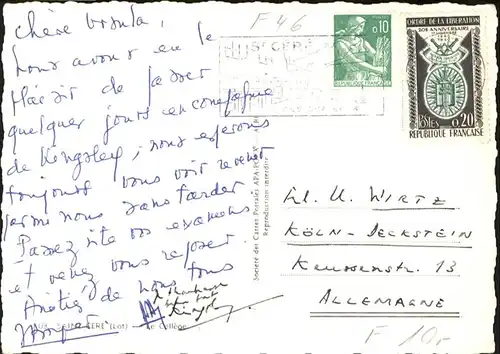 F 46
Chère Ursula,
Nous avons eu le
plaisir de passer
quelques jours en compagnie
de Kingsley, nous espérons
toujours vous voir revenir
parmi nous sans tarder
Passez vite vos examens
et venez vous reposer.
Amitiés de nous tous
ST CERE
POSTES 0,10
REPUBLIQUE FRANÇAISE
ORDRE DE LA LIBERATION
20E ANNIVERSAIRE
POSTES 0,20
REPUBLIQUE FRANÇAISE
Société des Cartes Postales APA-POUX
Reproduction interdite
U. WIRTZ
KÖLN-DECKSTEIN
13
ALLEMAGNE
F 10,-
(Lot) - Le Collège